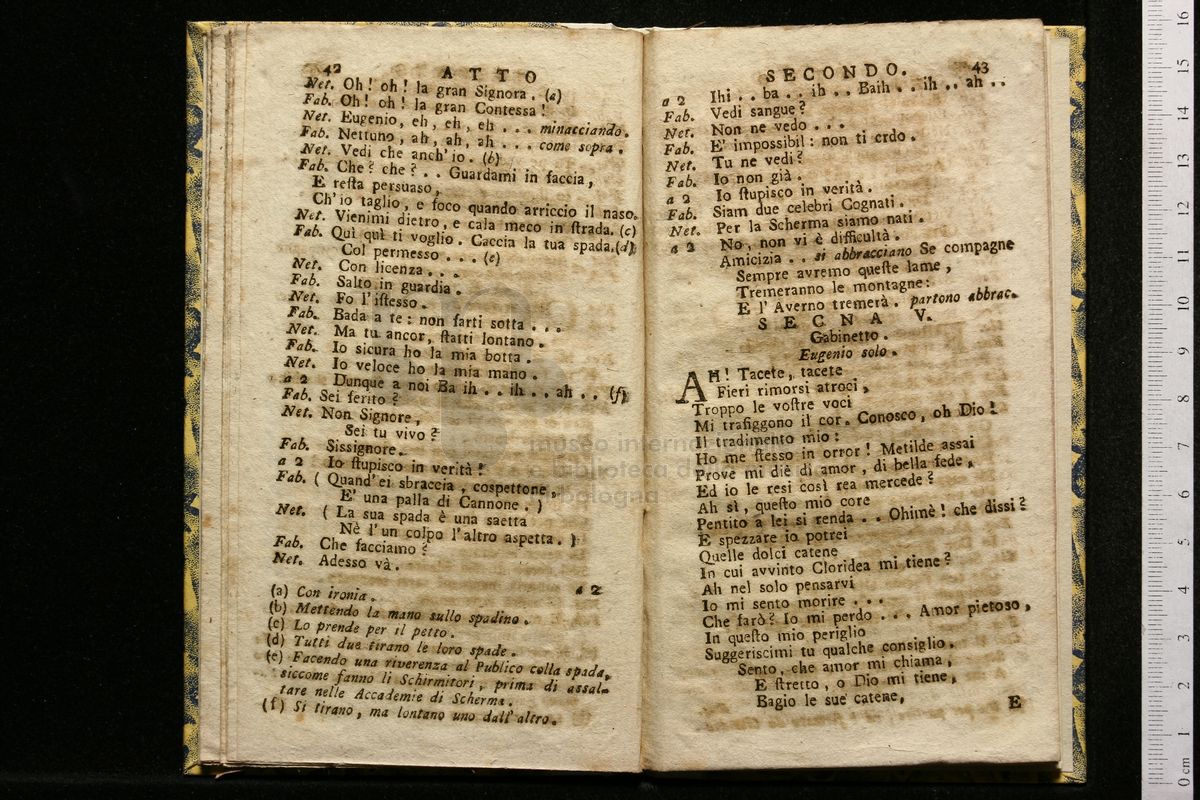 42 ATTO
Net. Oh! oh! la gran Signora. (a)
Fab. Oh! oh! la gran Contessa!
Net. Eugenio, eh, eh, eh . . . minacciando.
Fab. Nettuno, ah, ah, ah . . . come sopra.
Net. Vedi che anch'io. (b)
Fab. Che? che? . . Guardami in faccia,
E resta persuaso,
Ch'io taglio, e foco quando arriccio il naso.
Net. Vienimi dietro, e cala meco in strada. (c)
Fab. Quì quì ti voglio. Caccia la tua spada. (d)
Col permesso . . . (e)
Net. Con licenza . . .
Fab. Salto in guardia.
Net. Fo l'istesso.
Fab. Bada a te: non farti sotta . . .
Net. Ma tu ancor, statti lontano.
Fab. Io sicura ho la mia botta.
Net. Io veloce ho la mia mano.
a 2 Dunque a noi Ba ih . . ih . . ah . . (f)
Fab. Sei ferito?
Net. Non Signore,
Sei tu vivo?
Fab. Sissignore.
a 2 Io stupisco in verità!
Fab. ( Quand'ei sbraccia, cospettone,
E' una palla di Cannone. )
Net. ( La sua spada è una saetta
Nè l'un colpo l'altro aspetta. )
Fab. Che facciamo?
Net. Adesso và.
a 2
(a) Con ironia.
(b) Mettendo la mano sullo spadino.
(c) Lo prende per il petto.
(d) Tutti due tirano le loro spade.
(e) Facendo una riverenza al Publico colla spada,
siccome fanno li Schirmitori, prima di assal-
tare nelle Accademie di Scherma.
(f) Si tirano, ma lontano uno dall'altro.
SECONDO. 43
a 2 Ihi . . ba . . ih . . Baih . . ih . . ah . .
Fab. Vedi sangue?
Net. Non ne vedo . . .
Fab. E' impossibil: non ti crdo.
Net. Tu ne vedi?
Fab. Io non già.
a 2 Io stupisco in verità.
Fab. Siam due celebri Cognati.
Net. Per la Scherma siamo nati.
a 2 No, non vi è difficultà.
Amicizia . . si abbracciano Se compagne
Sempre avremo queste lame,
Tremeranno le montagne:
E l'Averno tremerà. partono abbrac.
SECNA V.
Gabinetto.
Eugenio solo.
AH! Tacete, tacete
Fieri rimorsi atroci,
Troppo le vostre voci
Mi trafiggono il cor. Conosco, oh Dio!
Il tradimento mio:
Ho me stesso in orror! Metilde assai
Prove mi diè di amor, di bella fede,
Ed io le resi così rea mercede?
Ah sì, questo mio core
Pentito a lei si renda . . Ohimè! che dissi?
E spezzare io potrei
Quelle dolci catene
In cui avvinto Cloridea mi tiene?
Ah nel solo pensarvi
Io mi sento morire . . .
Che farò? Io mi perdo . . . Amor pietoso,
In questo mio periglio
Suggeriscimi tu qualche consiglio.
Sento, che amor mi chiama,
E stretto, o Dio mi tiene,
Bagio le sue catene,
E